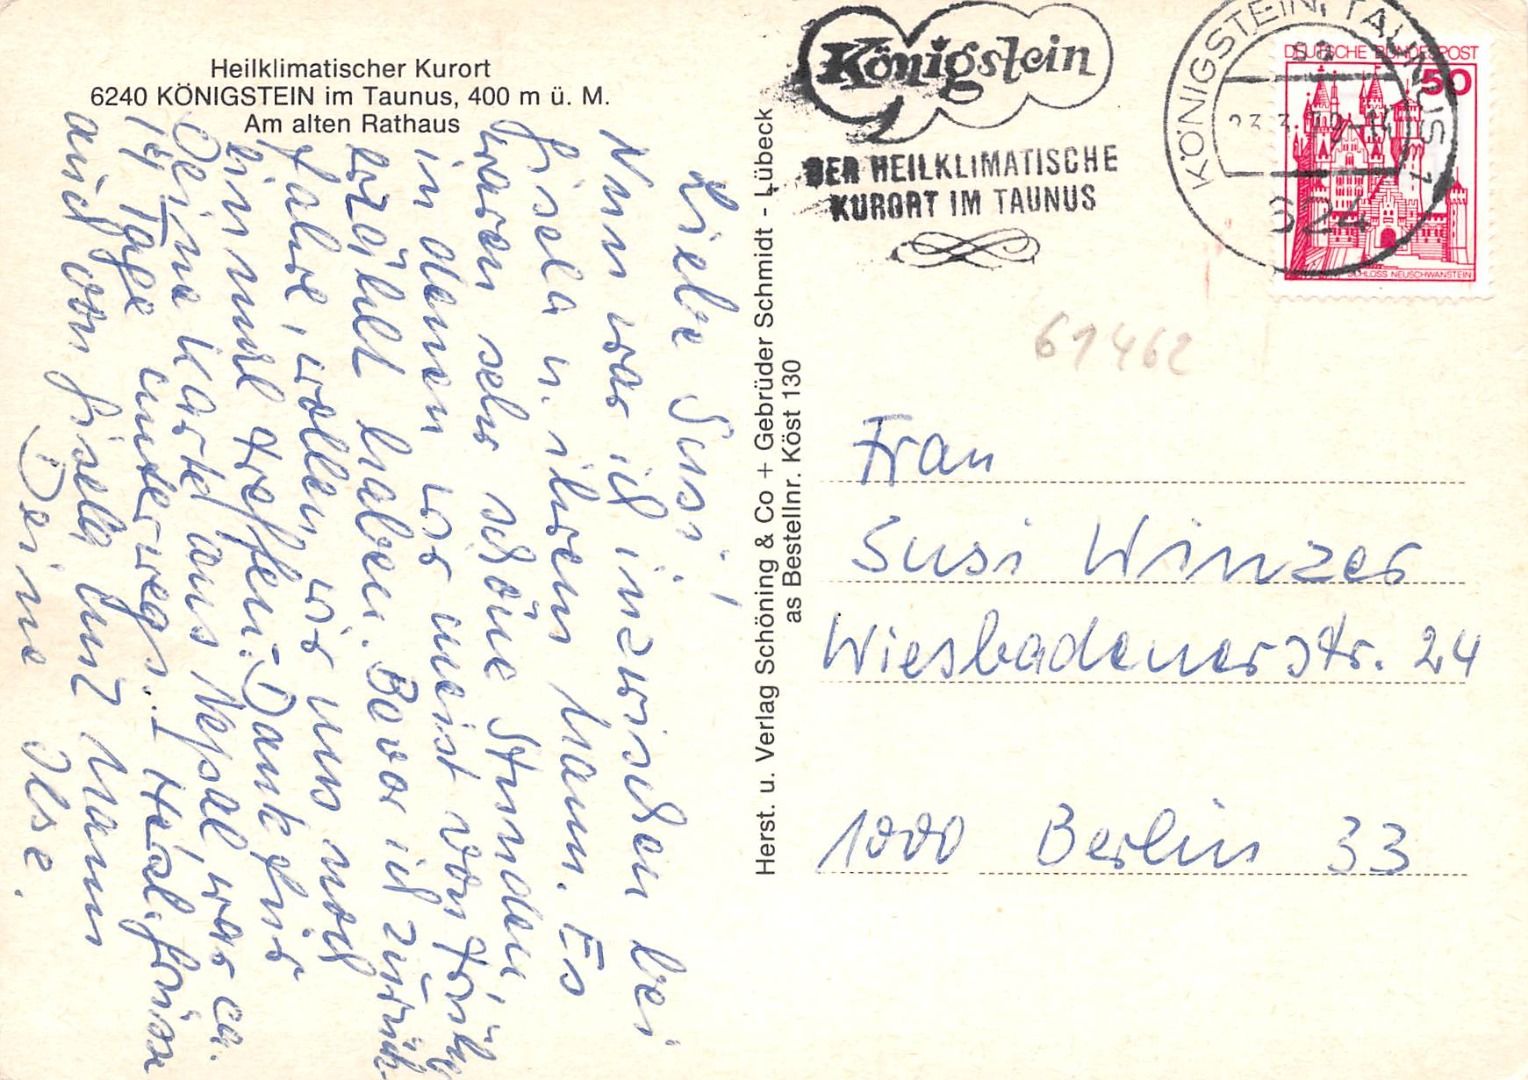 Heilklimatischer Kurort
6240 KÖNIGSTEIN im Taunus, 400 m ü. M.
Am alten Rathaus
Liebe Susi!
Nun war ich inzwischen bei
Gisela u. ihrem Mann. Es
waren sehr schöne Stunden,
in denen wir meist von früher
erzählt haben. Bevor ich zurück-
fahre, wollen wir uns noch
einmal treffen. Dank für
Deine Karte aus Nepal, war ca.
14 Tage unterwegs. Herzl. Grüsse
auch von Gisela und Mann
Deine Ilse.
Herst. u. Verlag Schöning & Co + Gebrüder Schmidt - Lübeck
as Bestellnr. Köst 130
Königstein
DER HEILKLIMATISCHE
KURORT IM TAUNUS
KÖNIGSTEIN, TAUNUS 1
624
DEUTSCHE BUNDESPOST
50
SCHLOSS NEUSCHWANSTEIN
61462
Frau
Susi Winzer
Wiesbadenerstr. 24
1000 Berlin 33